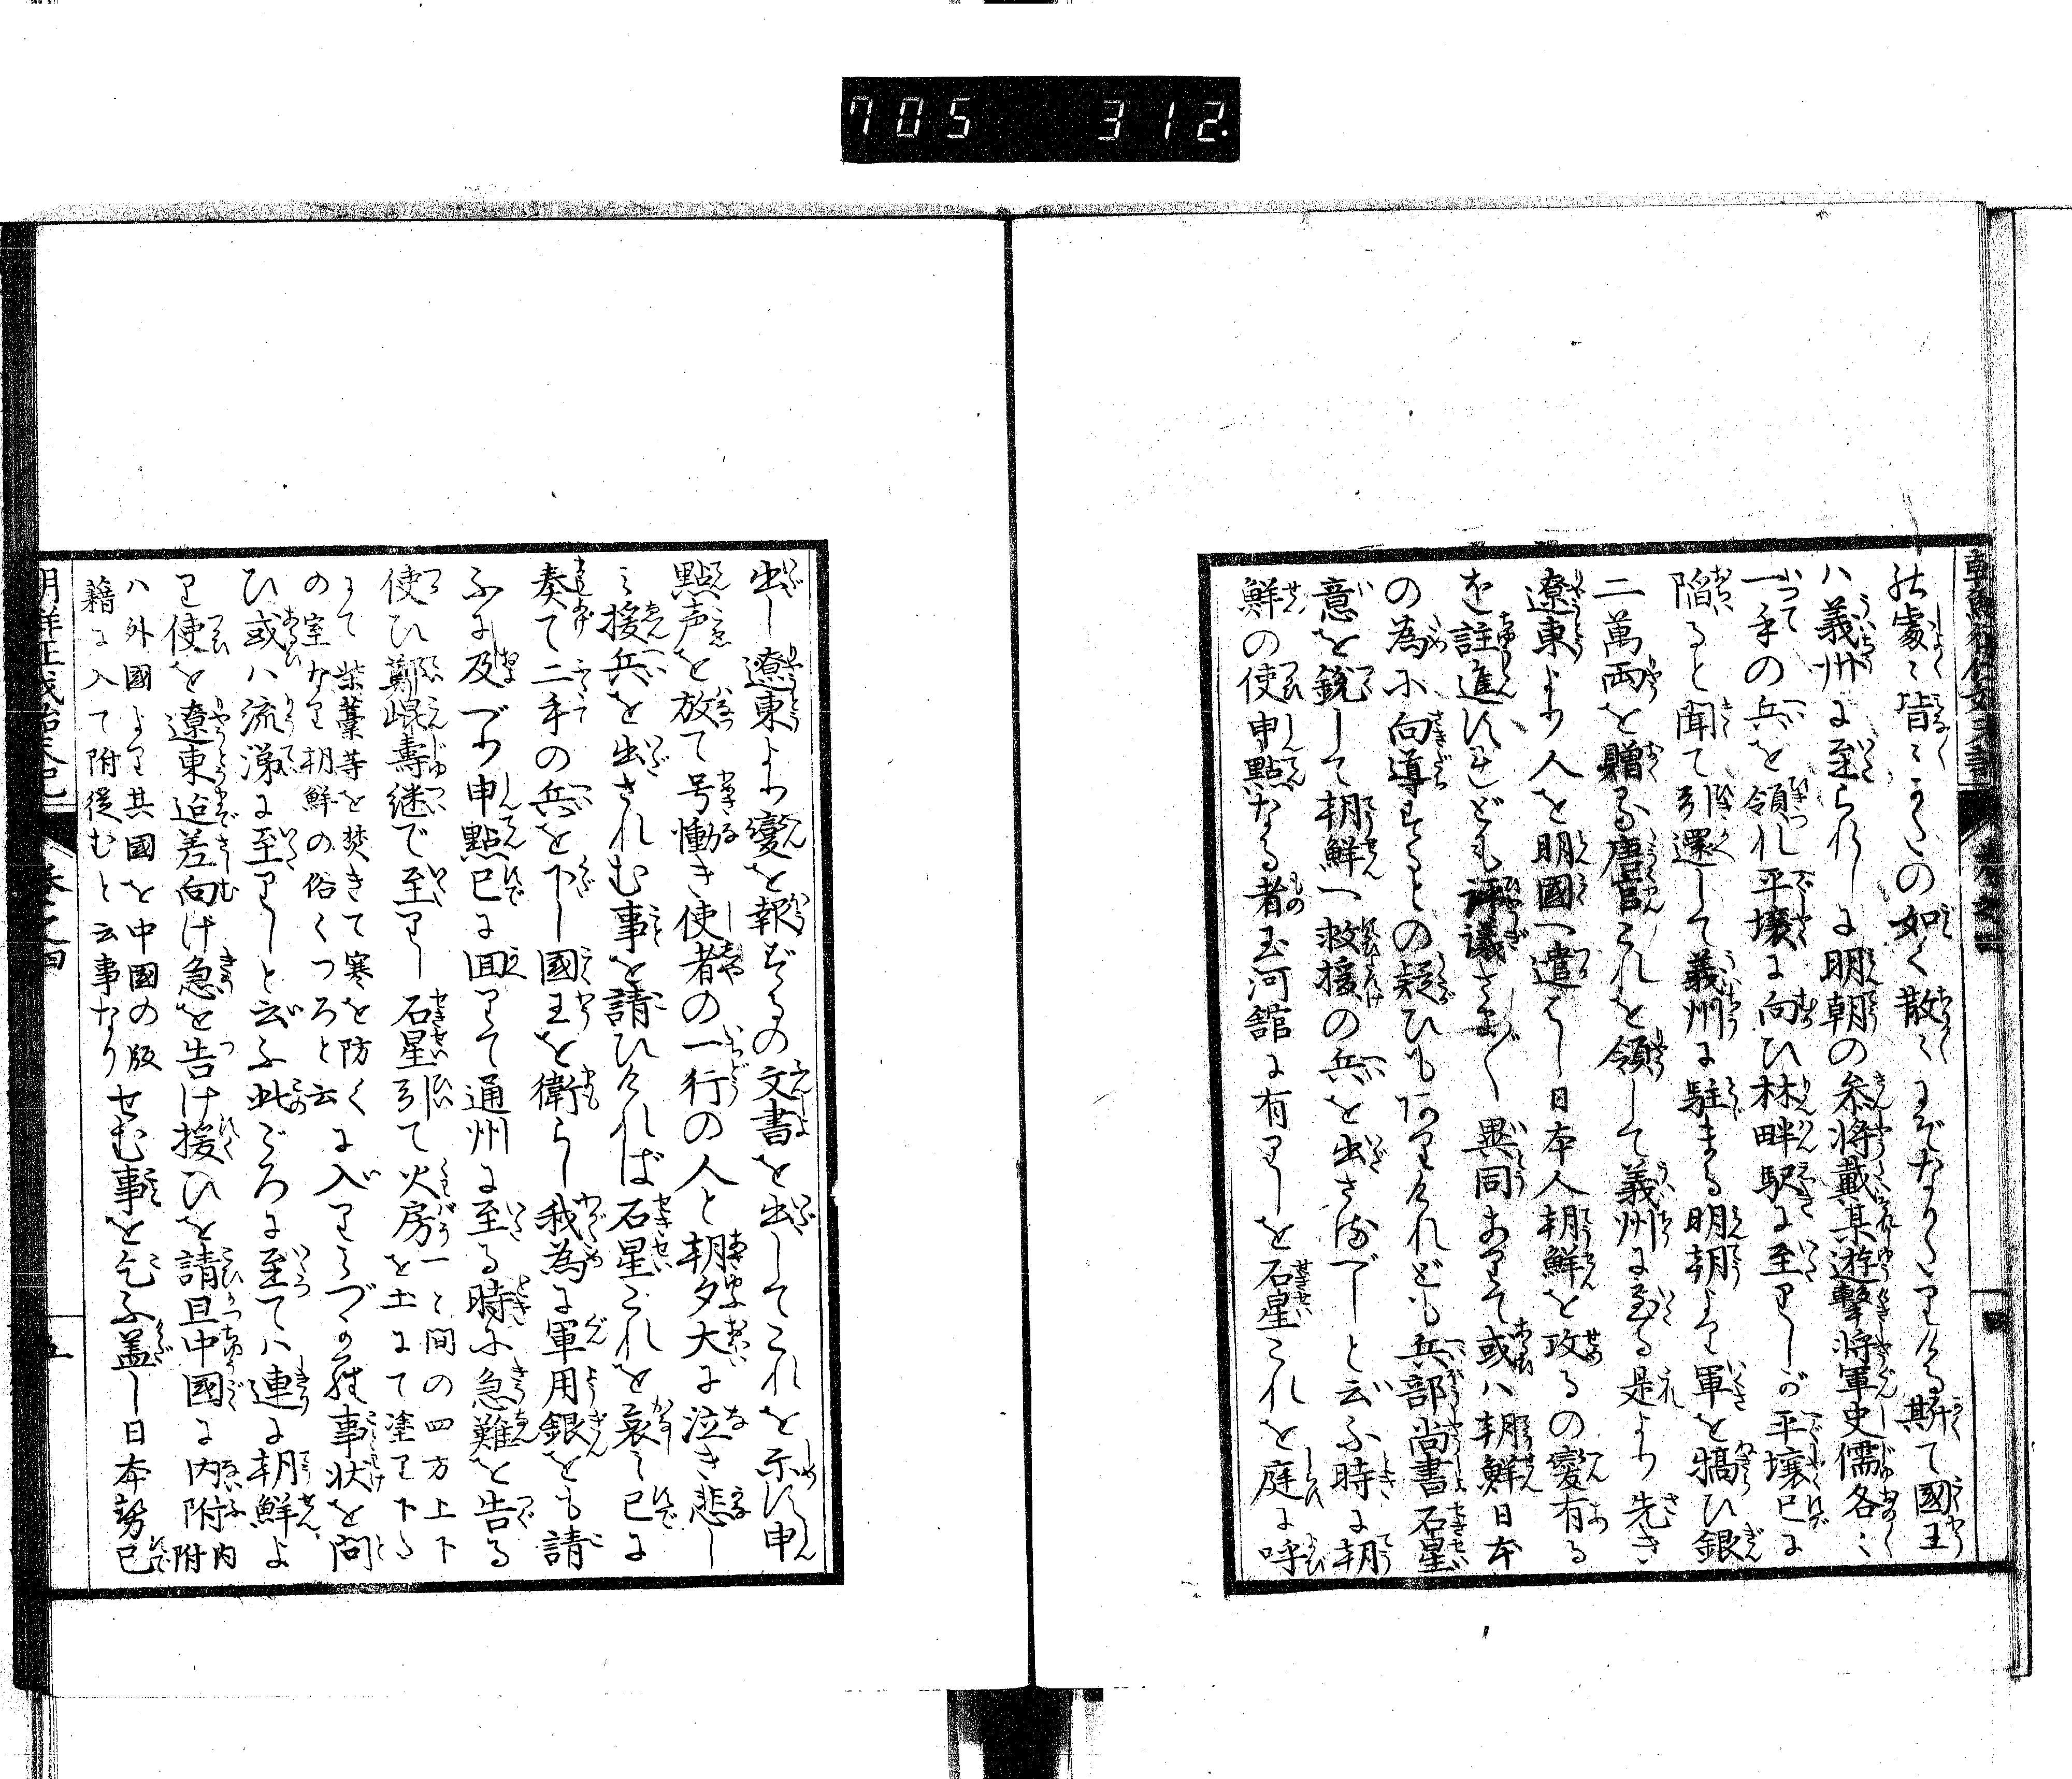 705 312
処處に皆こゝかしこの如く散々にぞなりにける斯て國王
ハ義州に至られしに明朝の参将戴某遊撃将軍史儒各々
一手の兵を領れ平壌に向ひ林畔駅に至りしが平壌已に
陥ると聞て引還して義州に駐まる明朝より軍を犒ひ銀
二萬両を贈る唐官これを領して義州に至る是より先き
遼東より人を明國へ遣ハし日本人朝鮮を攻るの變有る
を註進すれども評議さま〲異同ありて或ハ朝鮮日本
の為に向導するとの疑ひもありけれども兵部尚書石星
意を鋭して朝鮮へ救援の兵を出さるべしと云ふ時に朝
鮮の使申點なる者玉河舘に有りしを石星これを庭に呼
四
出し遼東より變を報ずるの文書を出してこれを示す申
點声を放て号慟き使者の一行の人と朝夕大に泣き悲し
み援兵を出されむ事を請ひければ石星これを哀み已に
奏て二手の兵を下し國王を衛らし我為に軍用銀をも請
ふに及べり申點已に回りて通州に至る時に急難を告る
使ひ鄭崐壽継で至りし石星引て火房一と間の四方上下を土にて塗り下た
にて柴藁等を焚きて寒を防くの室なり朝鮮の俗くつろと云に入りミづから事状を問
ひ或ハ流涕に至りしと云ふ此ごろに至てハ連に朝鮮よ
り使を遼東迄差向け急を告け援ひを請且中國に内附内附
ハ外國より其國を中國の版籍に入て附従むと云事なりせむ事を乞ふ蓋し日本勢已
巻之四
五